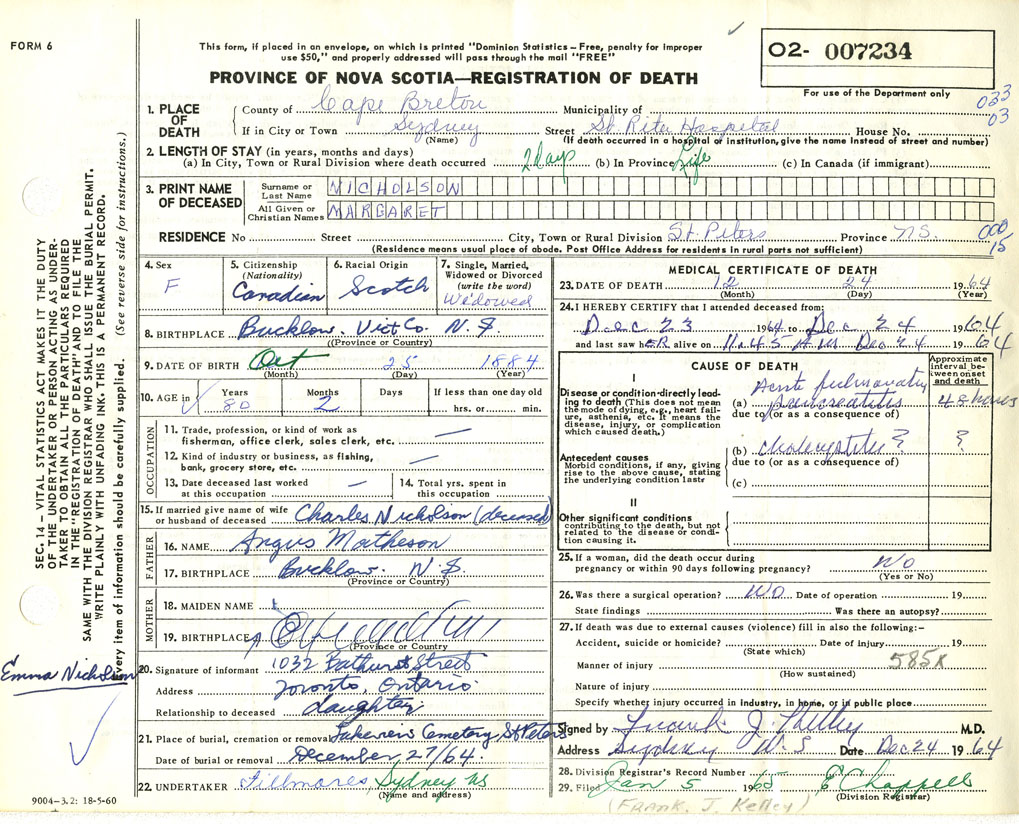 FORM 6
This form, if placed in an envelope, on which is printed "Dominion Statistics – Free, penalty for improper
use $50," and properly addressed will pass through the mail "FREE"
PROVINCE OF NOVA SCOTIA—REGISTRATION OF DEATH
02- 007234
For use of the Department only
033
03
1. PLACE OF DEATH
County of Cape Breton Municipality of
If in City or Town Sydney Street St. Rita Hospital House No.
(Name) (If death occurred in a hospital or institution, give the name instead of street and number)
2. LENGTH OF STAY (in years, months and days)
(a) In City, Town or Rural Division where death occurred 2 days (b) In Province Life (c) In Canada (if immigrant)
3. PRINT NAME OF DECEASED
Surname or Last Name NICHOLSON
All Given or Christian Names MARGARET
RESIDENCE No Street City, Town or Rural Division St. Peters Province N.S.
(Residence means usual place of abode. Post Office Address for residents in rural parts not sufficient)
000
15
4. Sex
F
5. Citizenship
(Nationality)
Canadian
6. Racial Origin
Scotch
7. Single, Married,
Widowed or Divorced
(write the word)
Widowed
8. BIRTHPLACE Bucklow. Vict Co. N.S.
(Province or Country)
9. DATE OF BIRTH Oct 25 1884
(Month) (Day) (Year)
10. AGE in
Years Months Days If less than one day old
80 2 hrs. or min.
OCCUPATION
11. Trade, profession, or kind of work as
fisherman, office clerk, sales clerk, etc. —
12. Kind of industry or business, as fishing,
bank, grocery store, etc. —
13. Date deceased last worked
at this occupation —
14. Total yrs. spent in
this occupation
15. If married give name of wife
or husband of deceased Charles Nicholson (deceased)
FATHER
16. NAME Angus Matheson
17. BIRTHPLACE Bucklow. N.S.
(Province or Country)
MOTHER
18. MAIDEN NAME
19. BIRTHPLACE
(Province or Country)
Emma Nicholson
20. Signature of informant 1032 Bathurst Street
Address Toronto, Ontario
Relationship to deceased daughter
21. Place of burial, cremation or removal Lakeview Cemetery St Peters
Date of burial or removal December 27/64.
22. UNDERTAKER Fillmores, Sydney NS
(Name and address)
9004–3.2: 18-5-60
SEC. 14 – VITAL STATISTICS ACT MAKES IT THE DUTY
OF THE UNDERTAKER OR PERSON ACTING AS UNDER-
TAKER TO OBTAIN ALL THE PARTICULARS REQUIRED
IN THE "REGISTRATION OF DEATH" AND TO FILE THE
SAME WITH THE DIVISION REGISTRAR WHO SHALL ISSUE THE BURIAL PERMIT.
WRITE PLAINLY WITH UNFADING INK. THIS IS A PERMANENT RECORD.
Every item of information should be carefully supplied. (See reverse side for instructions.)
MEDICAL CERTIFICATE OF DEATH
23. DATE OF DEATH 12 24 1964
(Month) (Day) (Year)
24. I HEREBY CERTIFY that I attended deceased from:
Dec 23 1964 to Dec 24 1964
and last saw hER alive on 11.45 A.M. Dec 24 1964
CAUSE OF DEATH
Approximate interval between onset and death
I
Disease or condition directly lead-
ing to death (This does not mean
the mode of dying, e.g., heart fail-
ure, asthenia, etc. It means the
disease, injury, or complication
which caused death.)
Acute
(a) pancreatitis 48 hours
due to (or as a consequence of)
Antecedent causes
Morbid conditions, if any, giving
rise to the above cause, stating
the underlying condition last
(b) ? ?
due to (or as a consequence of)
(c)
II
Other significant conditions
contributing to the death, but not
related to the disease or condi-
tion causing it.
25. If a woman, did the death occur during
pregnancy or within 90 days following pregnancy? No
(Yes or No)
26. Was there a surgical operation? No Date of operation 19
State findings Was there an autopsy?
27. If death was due to external causes (violence) fill in also the following:–
Accident, suicide or homicide? Date of injury 19
(State which)
Manner of injury 585X
(How sustained)
Nature of injury
Specify whether injury occurred in industry, in home, or in public place
Signed by Frank J. Kelley M.D.
Address Sydney N.S Date Dec 24 1964
28. Division Registrar's Record Number
29. Filed Jan 5 1965 E Chappell
(Division Registrar)
(FRANK. J. Kelley)